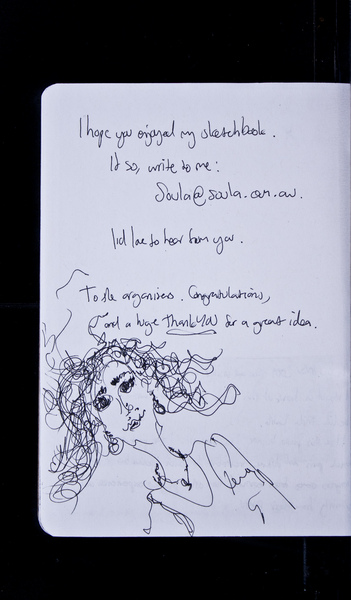 I hope you enjoyed my sketchbook.
If so, write to me:
Soula@soula.com.au.
I'd love to hear from you.
To the organisers. Congratulations,
and a huge thank YOU for a great idea.